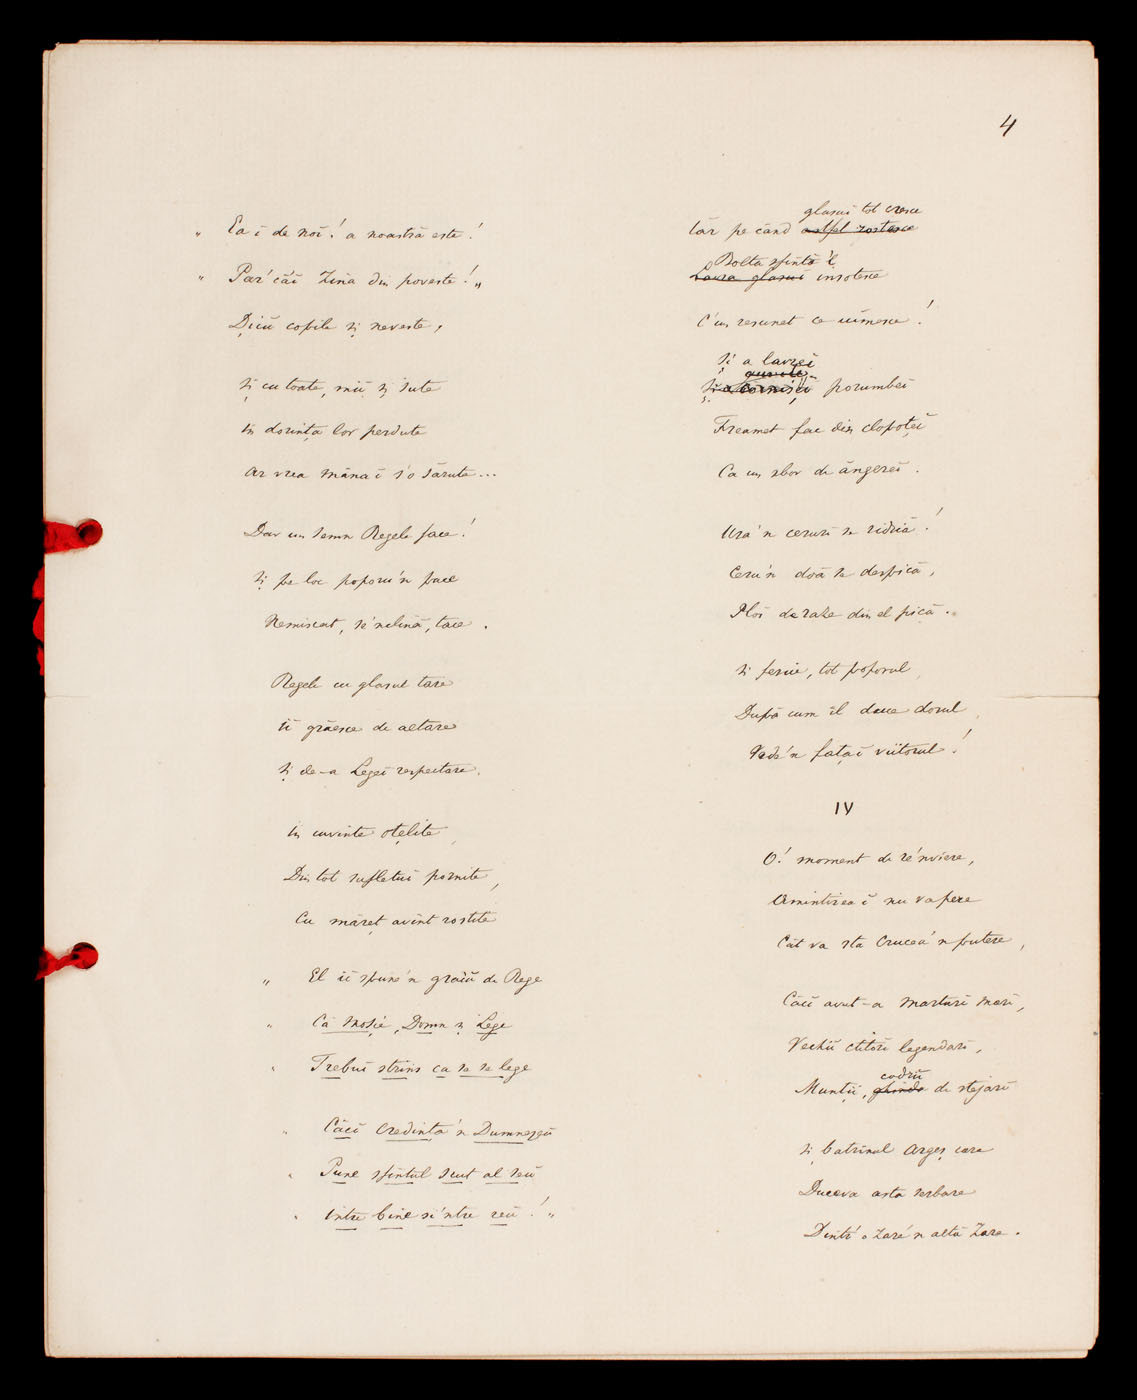 4
„ Ea ĭ de noĭ! a noastră este!
„ Par' căĭ Zîna din poveste!„
Dicŭ copile și neveste,
Și cu toate, miĭ și sute
În dorința lor perdute
Ar vrea mâna ĭ s'o sărute...
Dar un semn Regele face!
Și pe loc poporu'n pace
Nemiscat, se'nclină, tace.
Regele cu glasul tare
Iĭ grăesce de altare
Și de-a Legeĭ respectare.
În cuvinte oțelite
Din tot sufletul pornite,
Cu măreț avînt rostite
„ El iĭ spune'n graiŭ de Rege
„ Că Moșie, Domn și Lege
„ Trebuĭ strîns ca să se lege
„ Căcĭ Credința'n Dumnezeŭ
„ Pune sfîntul scut al seŭ
„ Intre bine si'ntre reŭ!„
glasuĭ tot cresce
Iar pe când astfel rostesce
Bolta sfîntă 'l
Lavra glasuĭ insotesce
C'un resunet ce uimesce!
Și a lavreĭ
Și a cornișĭĭ porumbeĭ
Freamet fac din clopoțeĭ
Ca un sbor de ângereĭ.
Ura'n cerurĭ se ridică!
Ceru'n doă se despică,
Ploĭ de raze din el pică.
Și ferice, tot poporul
După cum îl duce dorul
Vede'n fața ĭ viitorul!
IV
O! moment de re'nviere,
Amintirea ĭ nu va pere
Cât va sta Crucea'n putere,
Căcĭ avut-a marturĭ marĭ,
Vechiĭ ctitorĭ legendarĭ,
codriĭ
Munțiĭ, ghinda de stejarĭ
Și batrînul Argeș care
Duceva asta serbare
Dintr'o zare'n altă zare.